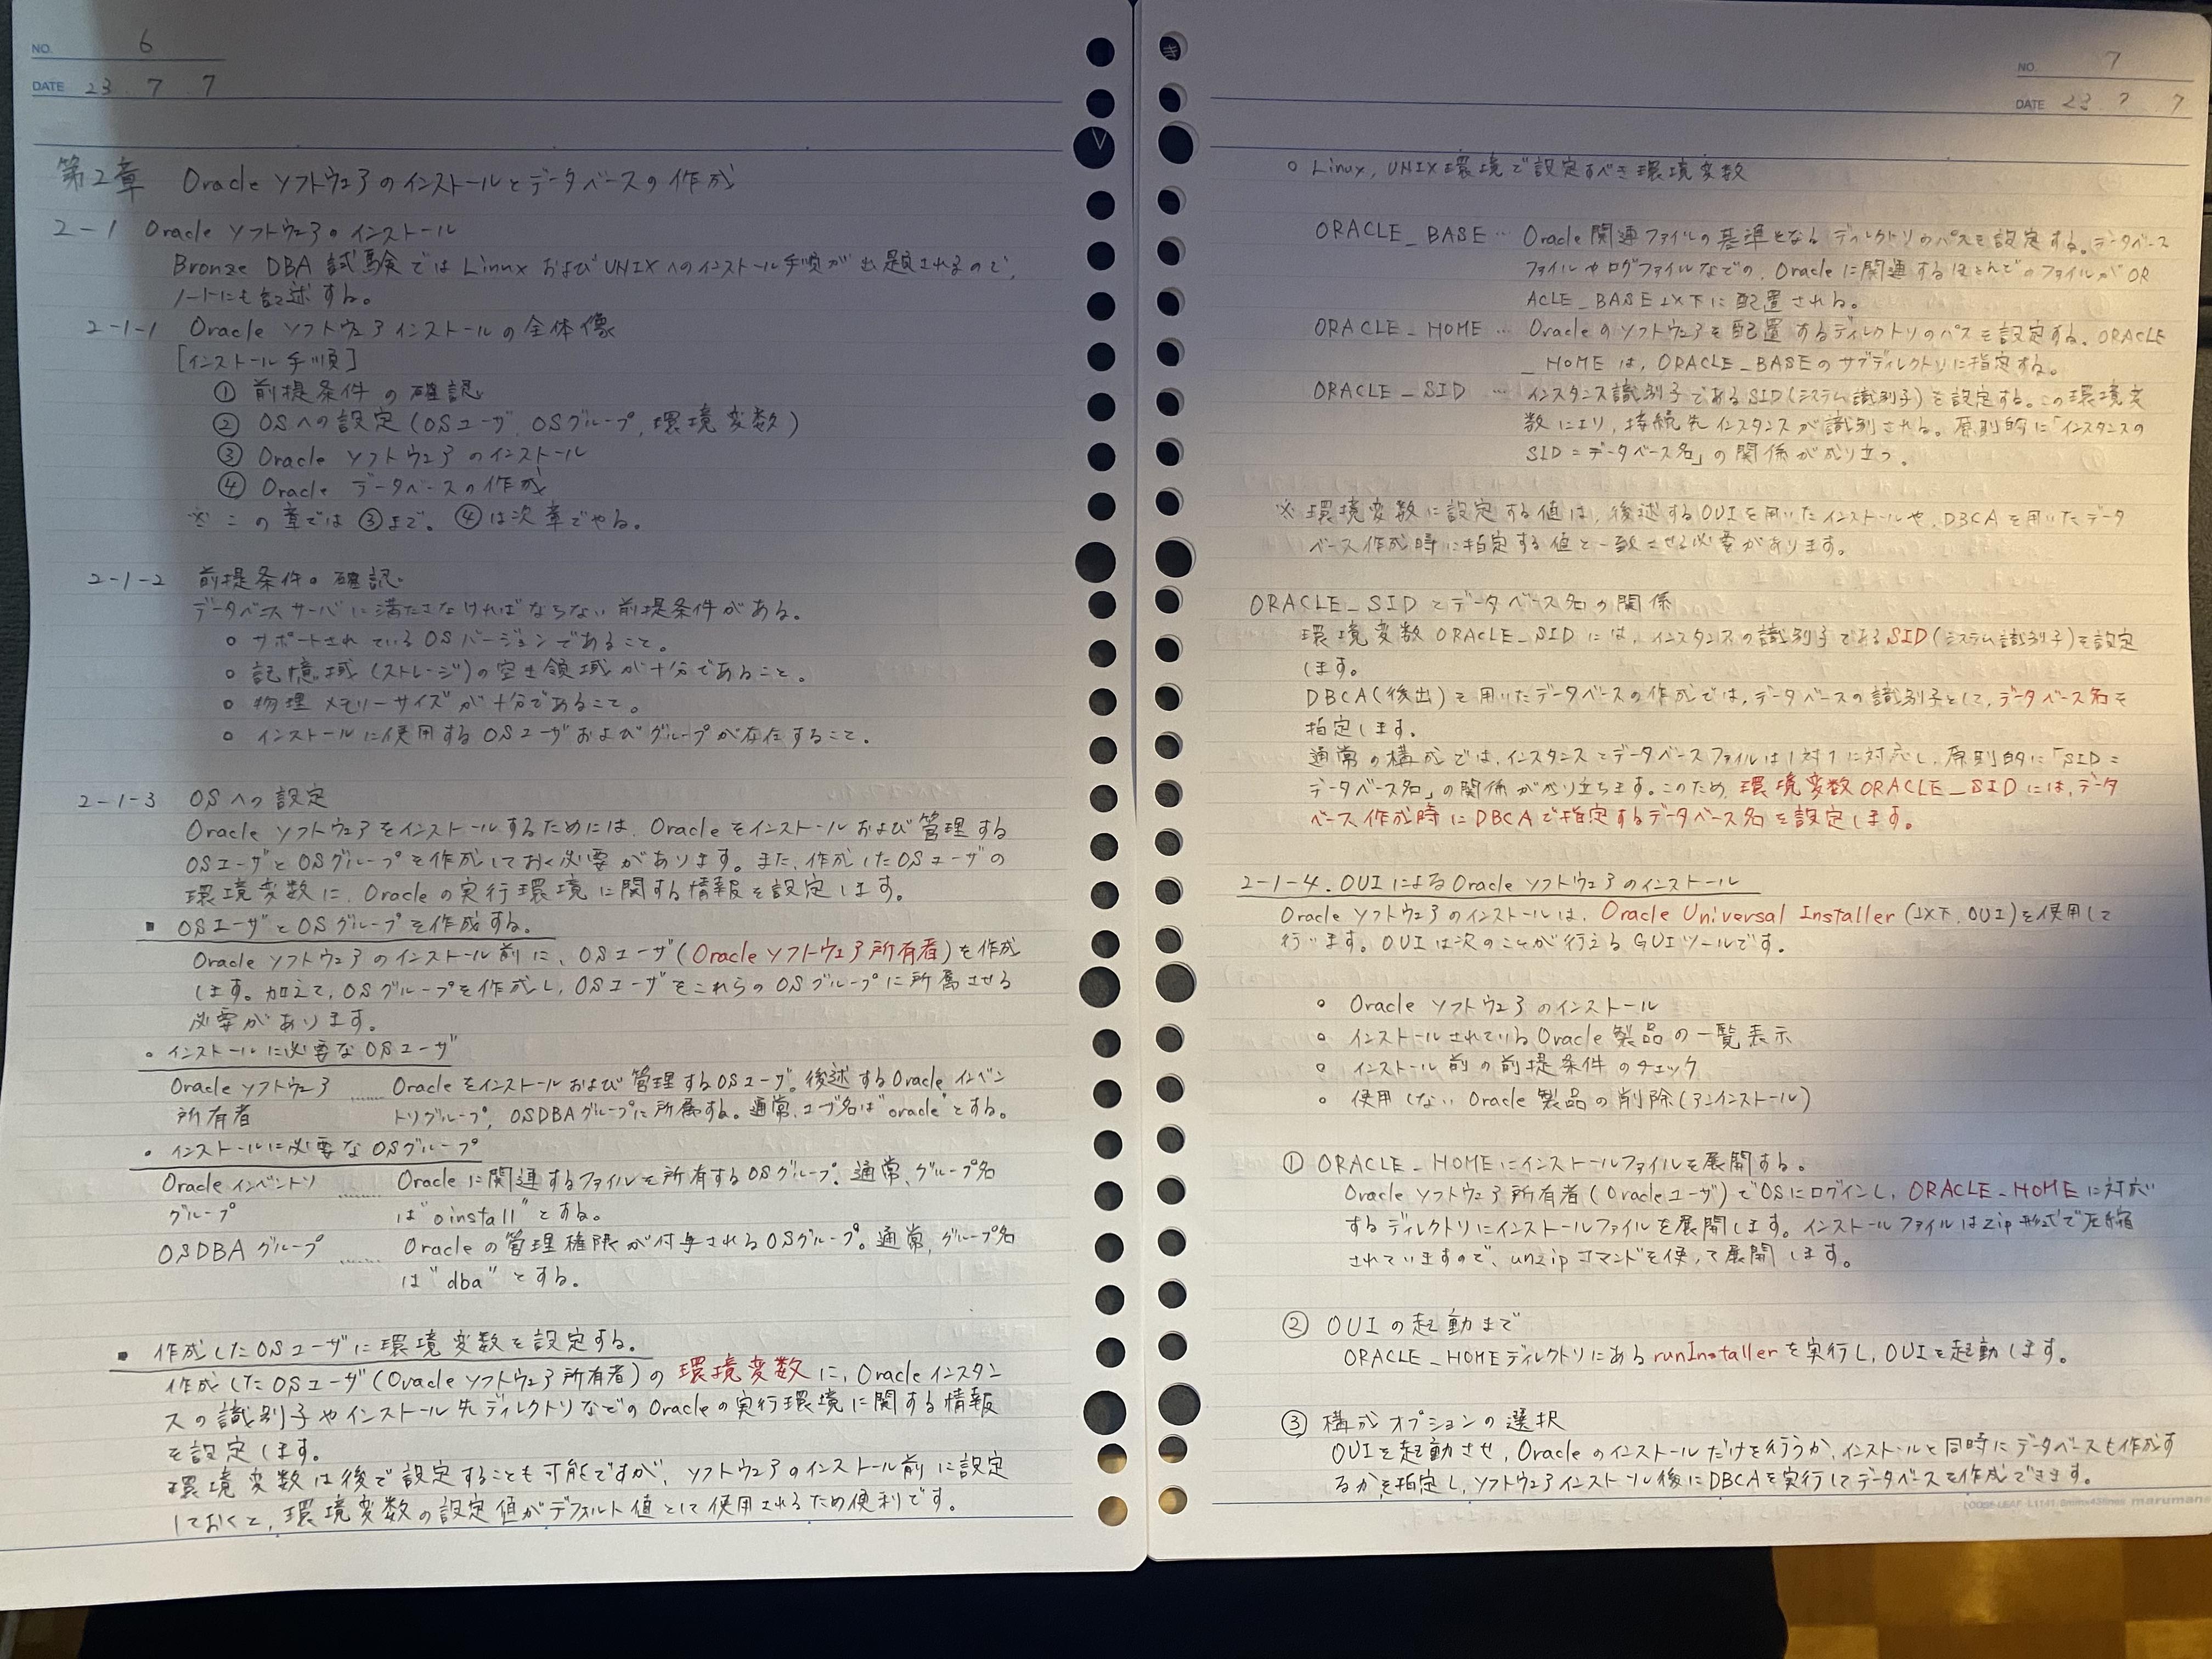 NO. 6
DATE 23 7 7
第2章 Oracle ソフトウェアのインストールとデータベースの作成
2-1 Oracle ソフトウェアのインストール
Bronze DBA 試験では Linux および UNIX へのインストール手順が出題されるので、
ノートにも記述する。
2-1-1 Oracle ソフトウェアインストールの全体像
[インストール手順]
① 前提条件の確認
② OSへの設定(OSユーザ、OSグループ、環境変数)
③ Oracle ソフトウェアのインストール
④ Oracle データベースの作成
※ この章では③まで。④は次章でやる。
2-1-2 前提条件の確認
データベースサーバに満たさなければならない前提条件がある。
○ サポートされているOSバージョンであること。
○ 記憶域(ストレージ)の空き領域が十分であること。
○ 物理メモリーサイズが十分であること。
○ インストールに使用するOSユーザおよびグループが存在すること。
2-1-3 OSへの設定
Oracle ソフトウェアをインストールするためには、Oracleをインストールおよび管理する
OSユーザとOSグループを作成しておく必要があります。また、作成したOSユーザの
環境変数に、Oracleの実行環境に関する情報を設定します。
▪ OSユーザとOSグループを作成する。
Oracle ソフトウェアのインストール前に、OSユーザ(Oracle ソフトウェア所有者)を作成
します。加えて、OSグループを作成し、OSユーザをこれらのOSグループに所属させる
必要があります。
・インストールに必要なOSユーザ
Oracle ソフトウェア …… Oracleをインストールおよび管理するOSユーザ。後述するOracle インベン
所有者 トリグループ、OSDBAグループに所属する。通常、ユーザ名は"oracle"とする。
・インストールに必要なOSグループ
Oracle インベントリ …… Oracleに関連するファイルを所有するOSグループ。通常、グループ名
グループ は"oinstall"とする。
OSDBA グループ …… Oracleの管理権限が付与されるOSグループ。通常、グループ名
は"dba"とする。
▪ 作成したOSユーザに環境変数を設定する。
作成したOSユーザ(Oracle ソフトウェア所有者)の環境変数に、Oracle インスタン
スの識別子やインストール先ディレクトリなどのOracleの実行環境に関する情報
を設定します。
環境変数は後で設定することも可能ですが、ソフトウェアのインストール前に設定
しておくと、環境変数の設定値がデフォルト値として使用されるため便利です。
NO. 7
DATE 23 7 7
○ Linux, UNIX環境で設定すべき環境変数
ORACLE_BASE … Oracle 関連ファイルの基準となるディレクトリのパスを設定する。データベース
ファイルやログファイルなどの、Oracleに関連するほとんどのファイルがOR
ACLE_BASE以下に配置される。
ORACLE_HOME … Oracleのソフトウェアを配置するディレクトリのパスを設定する。ORACLE
_HOMEは、ORACLE_BASEのサブディレクトリに指定する。
ORACLE_SID … インスタンス識別子であるSID(システム識別子)を設定する。この環境変
数により、接続先インスタンスが識別される。原則的に「インスタンスの
SID=データベース名」の関係が成り立つ。
※ 環境変数に設定する値は、後述するOUIを用いたインストールや、DBCAを用いたデータ
ベース作成時に指定する値と一致させる必要があります。
ORACLE_SIDとデータベース名の関係
環境変数ORACLE_SIDには、インスタンスの識別子であるSID(システム識別子)を設定
します。
DBCA(後出)を用いたデータベースの作成では、データベースの識別子として、データベース名を
指定します。
通常の構成では、インスタンスとデータベースファイルは1対1に対応し、原則的に「SID=
データベース名」の関係が成り立ちます。このため、環境変数ORACLE_SIDには、データ
ベース作成時にDBCAで指定するデータベース名を設定します。
2-1-4. OUIによるOracle ソフトウェアのインストール
Oracle ソフトウェアのインストールは、Oracle Universal Installer(以下、OUI)を使用して
行います。OUIは次のことが行えるGUIツールです。
○ Oracle ソフトウェアのインストール
○ インストールされているOracle製品の一覧表示
○ インストール前の前提条件のチェック
○ 使用しないOracle製品の削除(アンインストール)
① ORACLE_HOMEにインストールファイルを展開する。
Oracle ソフトウェア所有者(Oracleユーザ)でOSにログインし、ORACLE_HOMEに対応
するディレクトリにインストールファイルを展開します。インストールファイルはzip形式で圧縮
されていますので、unzipコマンドを使って展開します。
② OUIの起動まで
ORACLE_HOMEディレクトリにあるrunInstallerを実行し、OUIを起動します。
③ 構成オプションの選択
OUIを起動させ、Oracleのインストールだけを行うか、インストールと同時にデータベースも作成す
るかを指定し、ソフトウェアインストール後にDBCAを実行してデータベースを作成できます。